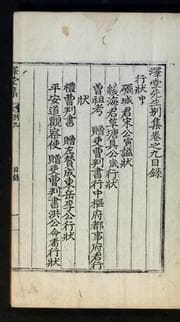 澤堂先生別集卷之九目錄
行狀中
礪城君宋公寅諡狀
綾海君塘具公宬行狀
曾祖考 贈吏曹判書行中樞府都事府君行
狀
禮曹判書 贈左贊成東岳李公行狀
平安道觀察使 贈吏曹判書洪公命耈行狀
目錄